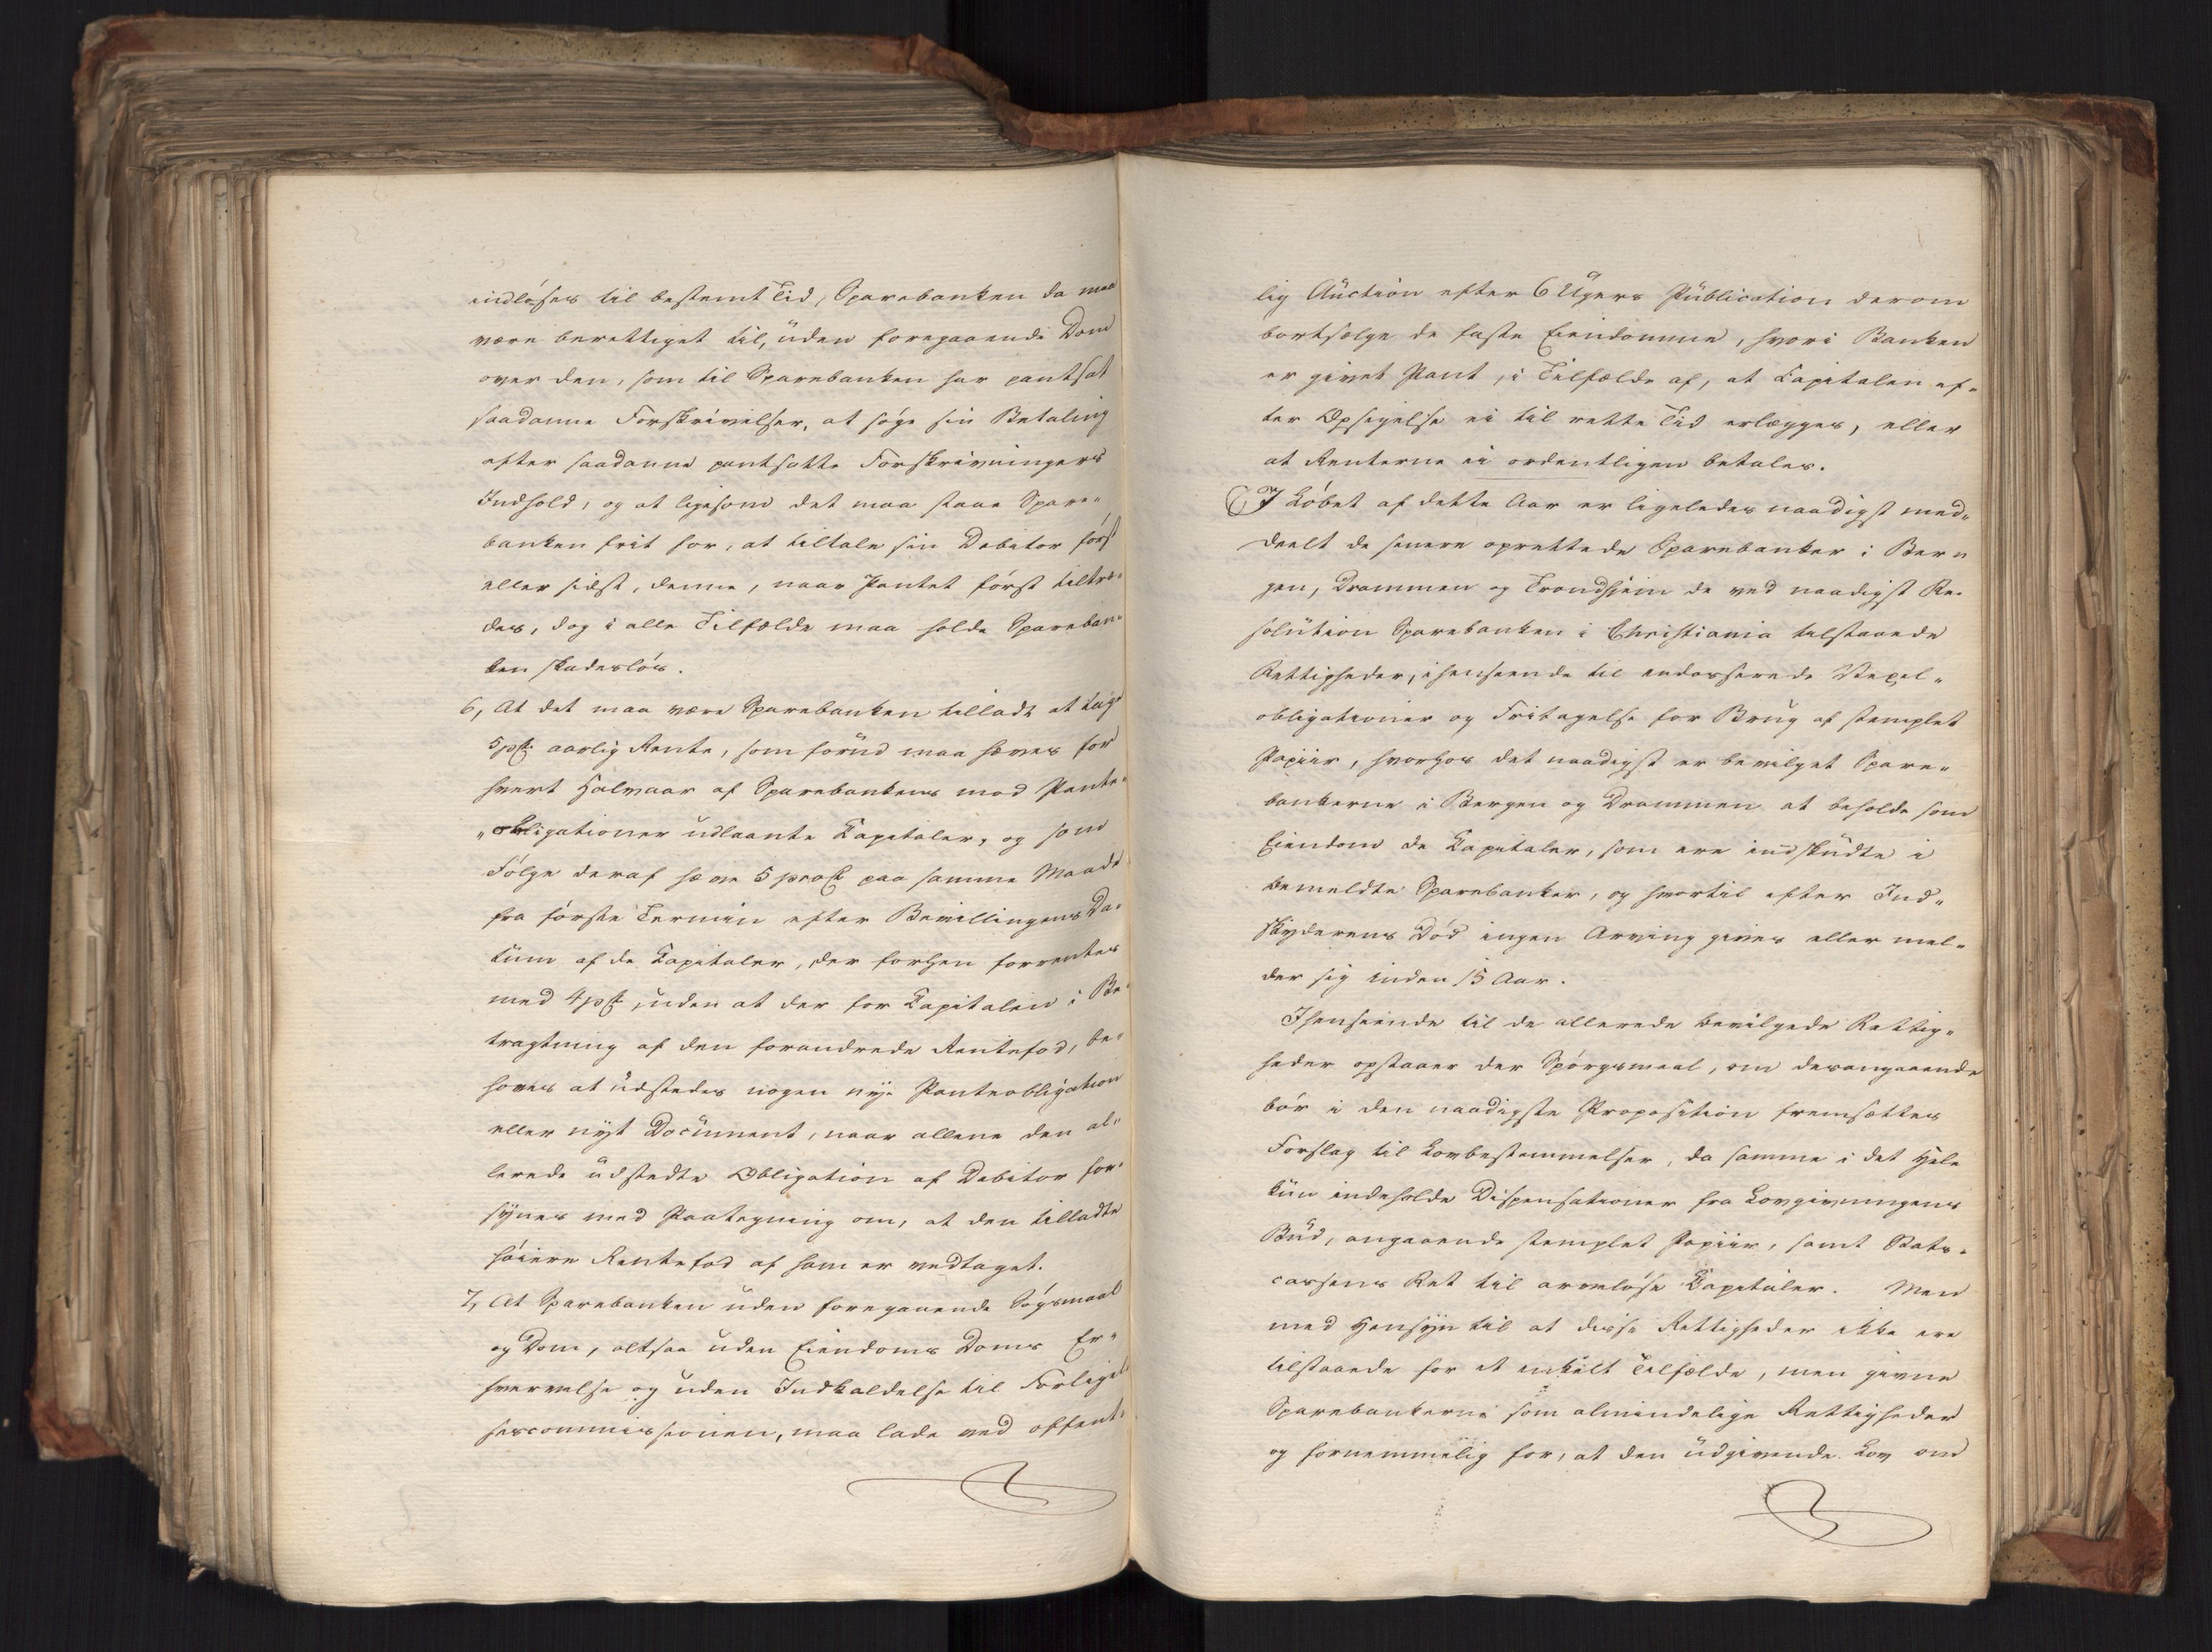 indløses til bestemt Tid, Sparebanken da maa
være berettiget til, uden foregaaende Dom
over den, som til Sparebanken har pantsat
saadanne Forskrivelser, at søge sin Betaling
efter saadanne pantsatte Forskrivningers
Indhold, og at ligesom det maa staae Spare-
banken frit for, at tiltale sin Debitor først
eller sidst, denne, naar Pantet først tiltræ-
des, dog i alle Tilfælde maa holde Spareban-
ken skadesløs.
6, At det maa være Sparebanken tilladt at tage
5 pCt. aarlig Rente, som forud maa hæves for
hvert Halvaar af Sparebankens mod Pante-
obligationer udlaante Capitaler, og som
Følge deraf hæve 5 proCt paa samme Maade
fra første Termin efter Bevillingens Da-
tum af de Capitaler, der forhen forrentes
med 4 pCt, uden at der for Capitalen i Be-
tragtning af den forandrede Rentefod, be-
høves at udstedes nogen nye Panteobligation
eller nyt Document, naar allene den al-
lerede udstedte Obligation af Debitor for-
synes med Paategning om, at den tilladte
høiere Rentefod af ham er vedtaget.
7, At Sparebanken uden foregaaende Søgsmaal
og Dom, altsaa uden Eiendoms Doms Er-
hvervelse og uden Indkaldelse til Forligel-
sescommissionen, maa lade ved offent-
lig Auction efter 6 Ugers Publication derom
bortsælge de faste Eiendomme, hvori Banken
er givet Pant, i Tilfælde af, at Capitalen ef-
ter Opsigelse ei til rette Tid erlægges, eller
at Renterne ei ordentligen betales.
I Løbet af dette Aar er ligeledes naadigst med-
deelt de senere oprettede Sparebanker i Ber-
gen, Drammen og Trondhjem de ved naadigst Re-
solution Sparebanken i Christiania tilstaaede
Rettigheder, ihenseende til endosserede Vexel-
obligationer og Fritagelse for Brug af stemplet
Papiir, hvorhos det naadigst er bevilget Spare-
bankerne i Bergen og Drammen at beholde som
Eiendom de Capitaler, som ere indskudte i
bemeldte Sparebanker, og hvortil efter Ind-
skyderens Død ingen Arving gives eller mel-
der sig inden 15 Aar.
Ihenseende til de allerede bevilgede Rettig-
heder opstaaer der Spørgsmaal, om desangaaende
bør i den naadigste Proposition fremsættes
Forslag til Lovbestemmelser, da samme i det Hele
kun indeholde Dispensationer fra Lovgivningens
Bud, angaaende stemplet Papiir, samt Stats-
cassens Ret til arveløse Capitaler. Men
med Hensyn til at disse Rettigheder ikke ere
tilstaaede for et enkelt Tilfælde, men givne
Sparebankerne som almindelige Rettigheder
og fornemmelig for, at den udgivende Lov om